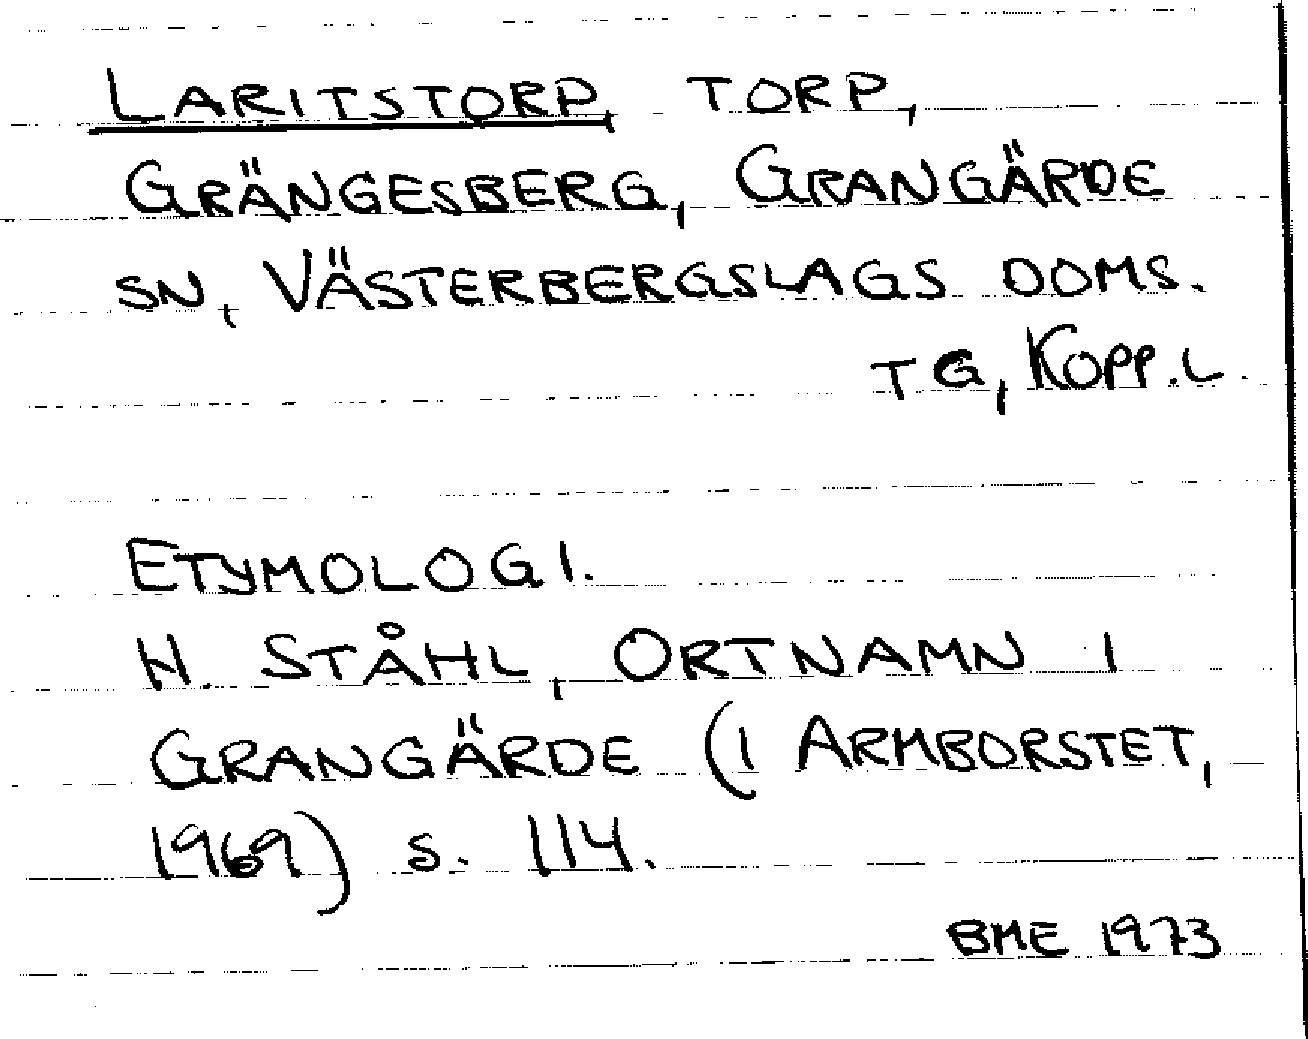 LARITSTORP, TORP,
GRÄNGESBERG, GRANGÄRDE
SN, VÄSTERBERGSLAGS DOMS.
TG, KOPP.L.
ETYMOLOGI.
H. STÅHL, ORTNAMN I
GRANGÄRDE (I ARMBORSTET,
1969) s. 114.
BME 1973